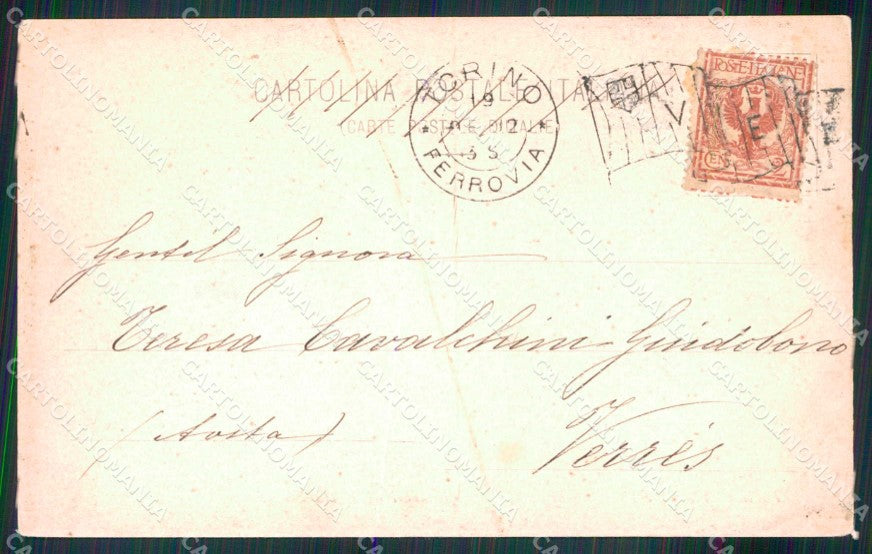 CARTOLINA POSTALE ITALIANA
(CARTE POSTALE D'ITALIE)
TORINO
19
12
FERROVIA
POSTE ITALIANE
Gentil Signora
Teresa Cavalchini Guidobono
(Aosta)
Verrès
CARTOLINOMANIA